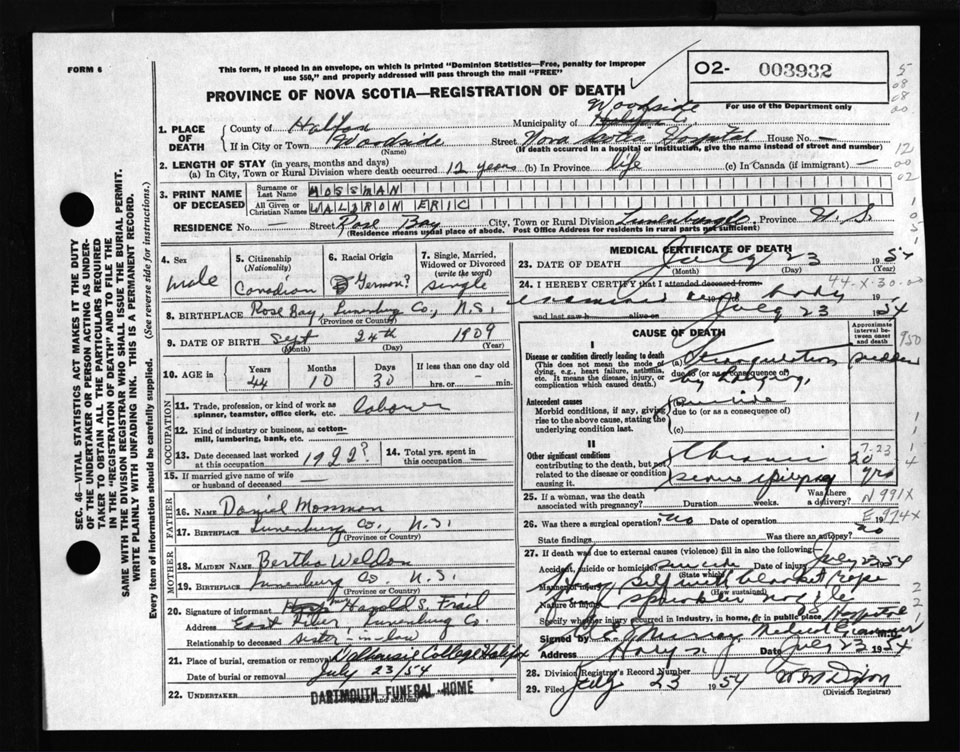 FORM 6
This form, if placed in an envelope, on which is printed "Dominion Statistics—Free, penalty for improper
use $50," and properly addressed will pass through the mail "FREE"
PROVINCE OF NOVA SCOTIA—REGISTRATION OF DEATH
O2- 003932
For use of the Department only
1. PLACE OF DEATH
County of Halifax Municipality of Woodside Halifax
If in City or Town Woodside (Name) Street Nova Scotia Hospital House No. —
(If death occurred in a hospital or institution, give the name instead of street and number)
2. LENGTH OF STAY (in years, months and days)
(a) In City, Town or Rural Division where death occurred 12 years (b) In Province life (c) In Canada (if immigrant) —
3. PRINT NAME OF DECEASED
Surname or Last Name MOSSMAN
All Given or Christian Names WALDRON ERIC
RESIDENCE No. — Street Rose Bay City, Town or Rural Division Lunenburg Co, Province N. S.
(Residence means usual place of abode. Post Office Address for residents in rural parts not sufficient)
4. Sex male
5. Citizenship (Nationality) Canadian
6. Racial Origin German?
7. Single, Married, Widowed or Divorced (write the word) single
8. BIRTHPLACE Rose Bay, Lunenburg Co., N.S.
(Province or County)
9. DATE OF BIRTH Sept 24th 1909
(Month) (Day) (Year)
10. AGE in Years 44 Months 10 Days 30 If less than one day old — hrs. or — min.
OCCUPATION
11. Trade, profession, or kind of work as spinner, teamster, office clerk, etc. laborer
12. Kind of industry or business, as cotton-mill, lumbering, bank, etc.
13. Date deceased last worked at this occupation 1922?
14. Total yrs. spent in this occupation —
15. If married give name of wife or husband of deceased
FATHER
16. NAME Daniel Mossman
17. BIRTHPLACE Lunenburg Co., N.S.
(Province or County)
MOTHER
18. MAIDEN NAME Bertha Weldon
19. BIRTHPLACE Lunenburg Co. N.S.
(Province or County)
20. Signature of informant Mrs Harold S.
Address East Lunenburg Co.
Relationship to deceased sister-in-law
21. Place of burial, cremation or removal Dalhousie College Halifax
Date of burial or removal July 23/54
22. UNDERTAKER DARTMOUTH FUNERAL HOME
(Name and address)
MEDICAL CERTIFICATE OF DEATH
23. DATE OF DEATH July 23 1954
(Month) (Day) (Year)
24. I HEREBY CERTIFY that I attended deceased from 44-X-30-00
examined body 1954
and last saw h alive on July 23
CAUSE OF DEATH
Approximate interval between onset and death
I
Disease or condition directly leading to death
(This does not mean the mode of dying, e.g., heart failure, asthenia, etc. It means the disease, injury, or complication which caused death.)
(a) Strangulation sudden
due to (or as a consequence of)
by hanging,
Antecedent causes
Morbid conditions, if any, giving rise to the above cause, stating the underlying condition last.
(b) suicide
due to (or as a consequence of)
(c)
II
Other significant conditions contributing to the death, but not related to the disease or condition causing it.
Chronic
epilepsy
7-23
20 yrs
950
25. If a woman, was the death associated with pregnancy? Duration weeks Was there a delivery? N 991X
26. Was there a surgical operation? no Date of operation 19
E 974X
State findings Was there an autopsy? no
27. If death was due to external causes (violence) fill in also the following:
Accident, suicide or homicide? suicide Date of injury July 23 1954
(State which)
Manner of injury Hung self with blanket rope
(How sustained)
Nature of injury sprinkler nozzle
Specify whether injury occurred in industry, in home, or in public place Hospital
Signed by Murray Medical Examiner
Address Date July 23 1954
28. Division Registrar's Record Number
29. Filed July 23 1954 W M Dixon
(Division Registrar)
SEC. 46—VITAL STATISTICS ACT MAKES IT THE DUTY
OF THE UNDERTAKER OR PERSON ACTING AS UNDER-
TAKER TO OBTAIN ALL THE PARTICULARS REQUIRED
IN THE "REGISTRATION OF DEATH" AND TO FILE THE
SAME WITH THE DIVISION REGISTRAR WHO SHALL ISSUE THE BURIAL PERMIT.
WRITE PLAINLY WITH UNFADING INK. THIS IS A PERMANENT RECORD.
Every item of information should be carefully supplied. (See reverse side for instructions.)